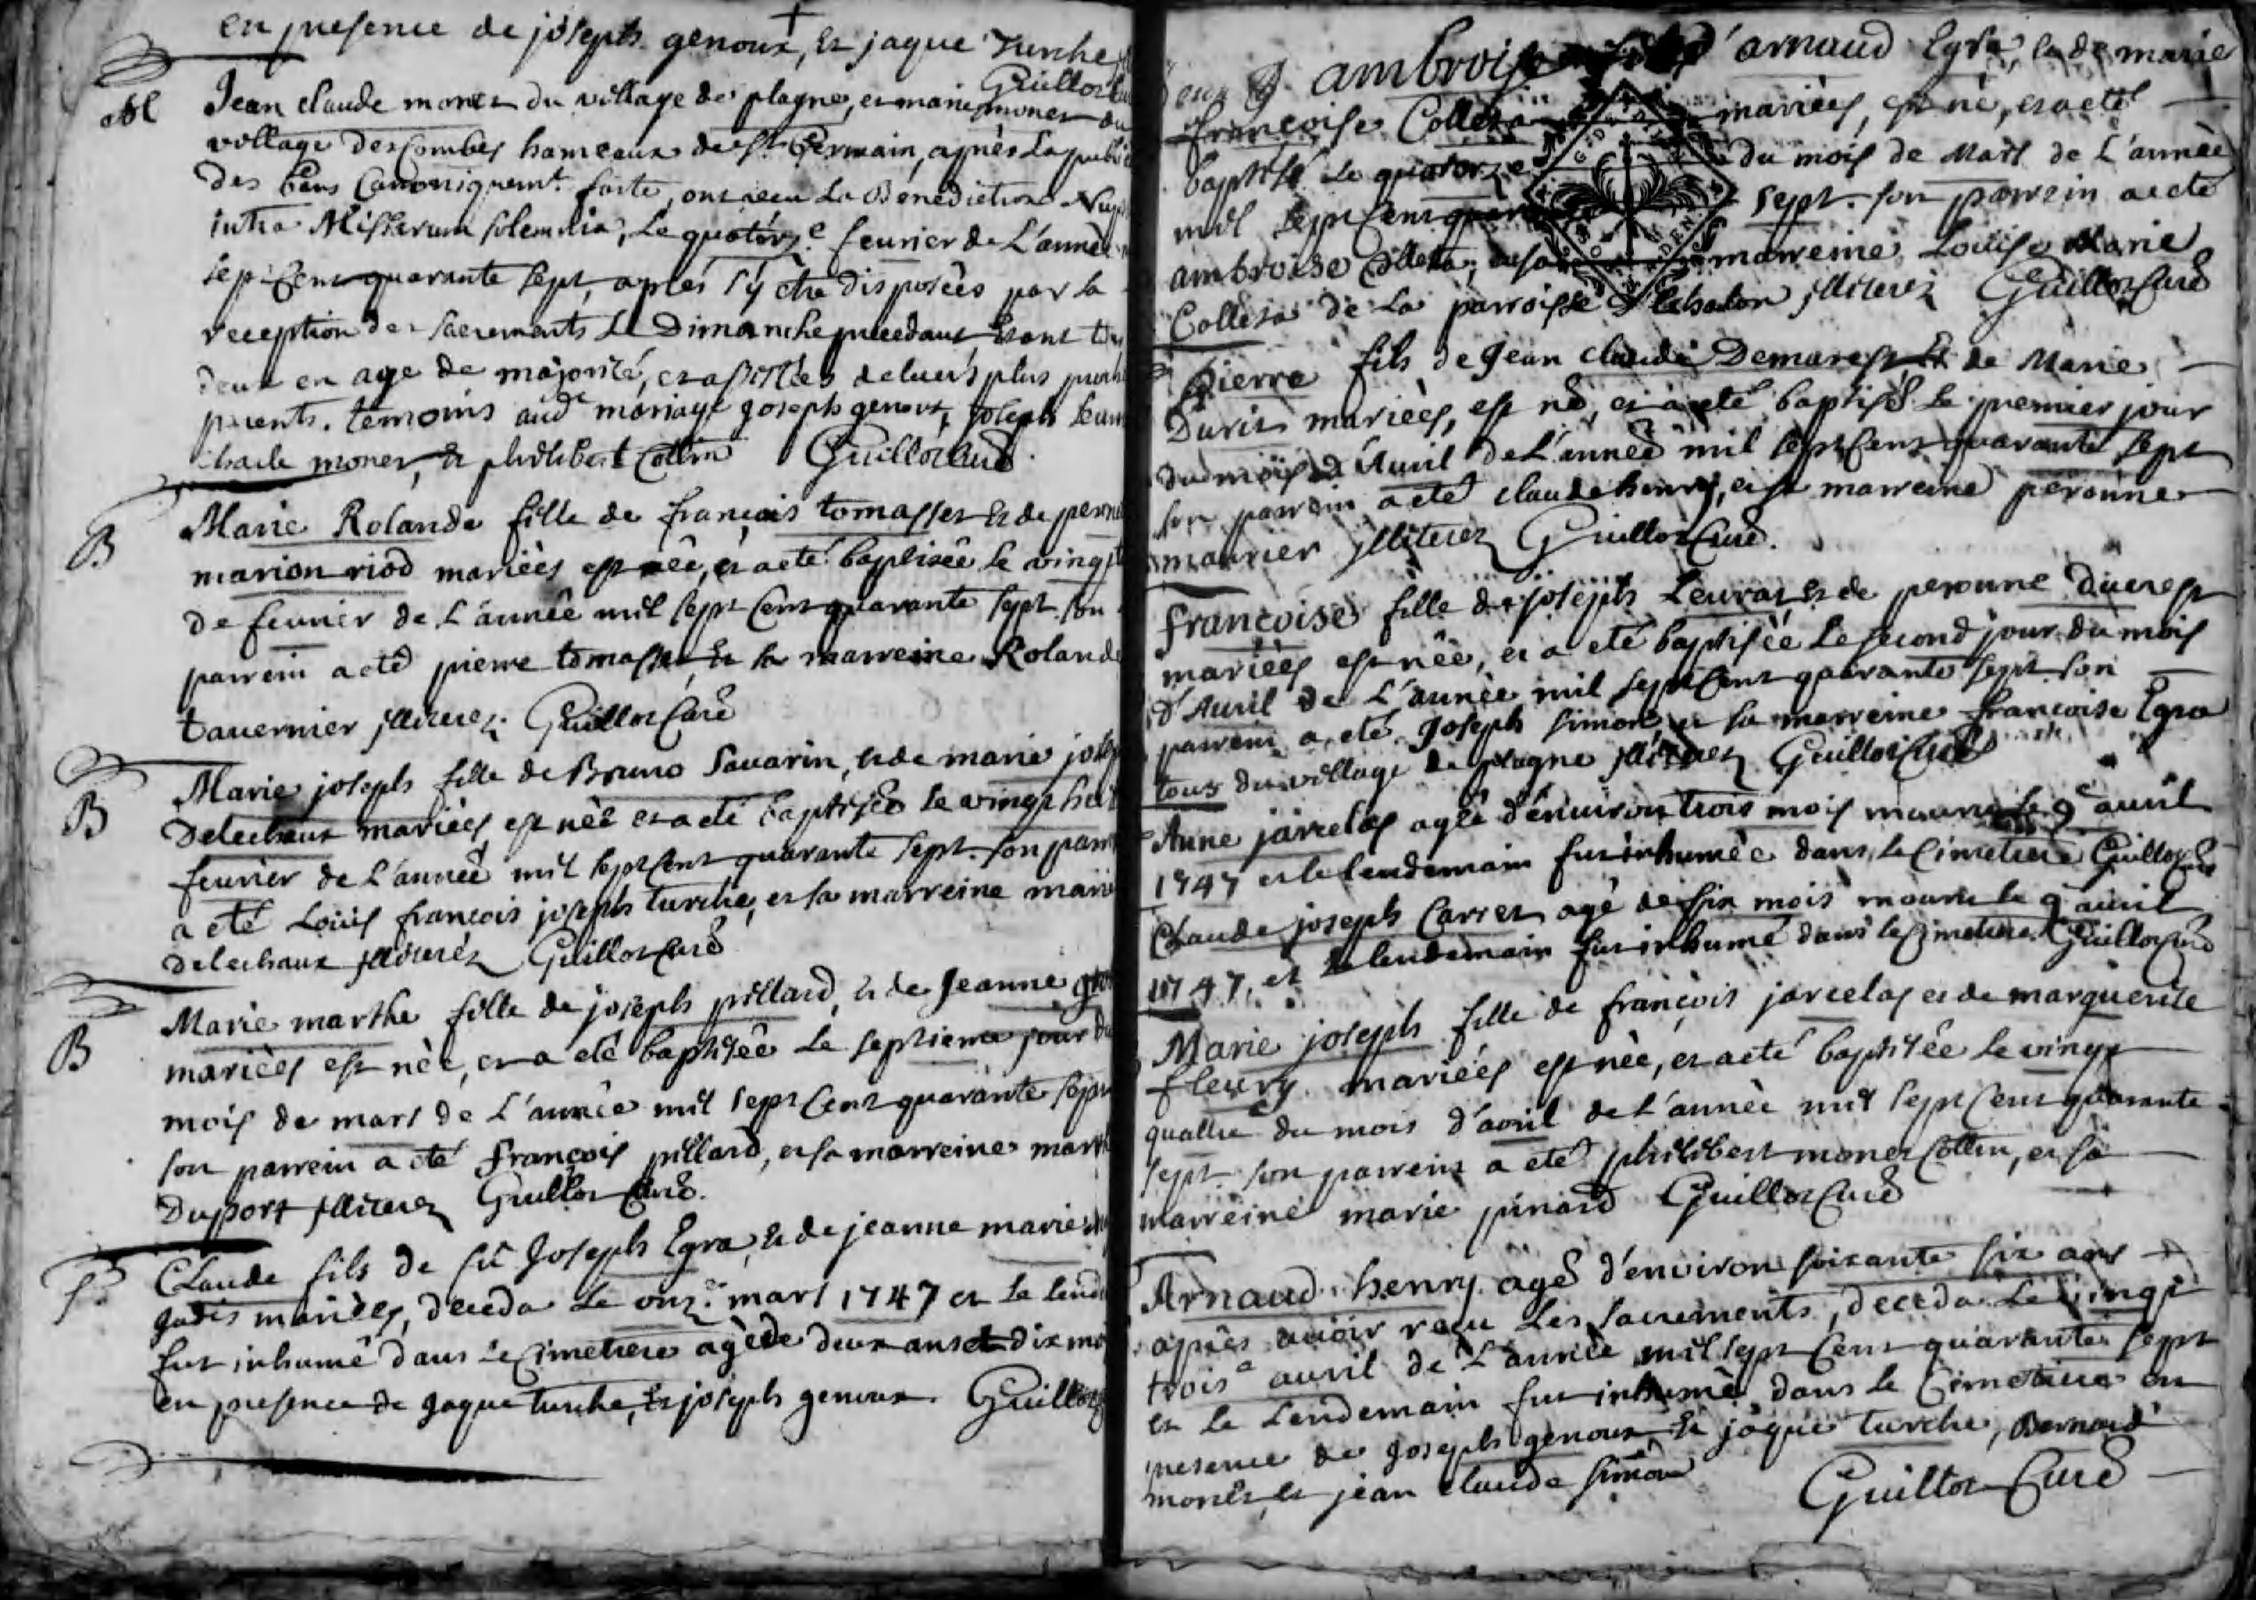 en presence de joseph genoux, et jaque turche
Guillot
M
Jean claude monet du village de plagne, et marie monet du
village des Combes hameaux de st Germain, après la publi
des bans Canoniquemt faite, ont receu La Benediction Nup
intra Missarum solemnia, Le quatorze fevrier de L'année
sept Cent quarante sept, après s'y etre disposées par la
reception des sacrements Le Dimanche precedant etant tou
deux en age de majorité, et assistées de leurs plus proch
parents. temoins audt mariage joseph genoux, joseph
Claude monet, et philibert Collin Guillot Curé
B
Marie Rolande fille de francois tomasset et de
marion riod mariées est née, et a eté baptisée le vingt
de fevrier de L'année mil sept Cent quarante sept. son
parrein a eté pierre tomasset et sa marreine Roland
tavernier jlliterez. Guillot Curé
B
Marie joseph fille de Bruno Savarin, et de marie josep
Delechaux mariées est née et a eté baptisée le vingt huit
fevrier de L'année mil sept Cent quarante sept. son parr
a eté Louis francois joseph turche, et sa marreine marie
delechaux jlliterez Guillot Curé
B
Marie marthe fille de joseph pillard, et de Jeanne
mariées est née, et a eté baptisée Le septieme jour du
mois de mars de L'année mil sept Cent quarante sept
son parrein a eté François pillard, et sa marreine mart
Duport jlliterez Guillot Curé.
S.
Claude fils de fû Joseph Egra, et de jeanne marie
jadis mariées, deceda Le onze mars 1747 et le lend
fut inhumé dans le Cimetiere agé de deux ans et dix mo
en presence de jaque turche, et joseph genoux. Guillot
ambroise fils d'arnaud Egra, et de marie
françoise Colleta mariées, est né, et a eté
baptisé Le quatorze du mois de Mars de L'année
mil sept Cent quarante sept. son parrein a eté
ambroise Colleta, et sa marreine Louise Marie
Colleta de La parroisse jlliterez Guillot Curé
pierre fils de Jean claude Demarest, et de Marie
Duris mariées, est né, et a eté baptisé Le premier jour
du mois d'Avril de L'année mil sept Cent quarante sept
son parrein a eté claude henry, et sa marreine peronne
maurier jlliterez Guillot Curé.
françoise fille de joseph Levrat et de peronne Ducrest
mariées est née, et a eté baptisée Le second jour du mois
d'Avril de L'année mil sept Cent quarante sept. son
parrein a eté Joseph simon et sa marreine francoise Egra
tous du village de plagne jlliterez Guillot Curé
Anne jarcelas agée d'environ trois mois mourut le 9e avril
1747 et le lendemain fut inhumée dans le Cimetiere Guillot Curé
Claude joseph Carrez agé de six mois mourut le 9 avril
1747, et le lendemain fut inhumé dans le Cimetiere Guillot Curé
Marie joseph fille de françois jarcelas et de marguerite
fleury mariées est née, et a eté baptisée le vingt
quattre du mois d'avril de L'année mil sept Cent quarante
sept. son parrein a eté philibert monet Collin, et sa
marreine marie pinard Guillot Curé
Arnaud henry agé d'environ soixante six ans
après avoir reçu Les sacrements, deceda Le vingt
troise avril de L'année mil sept Cent quarante sept
et Le Lendemain fut inhumé dans le Cimetiere en
presence de Joseph genoux et jaque turche, Bernard
monet et jean claude simon Guillot Curé